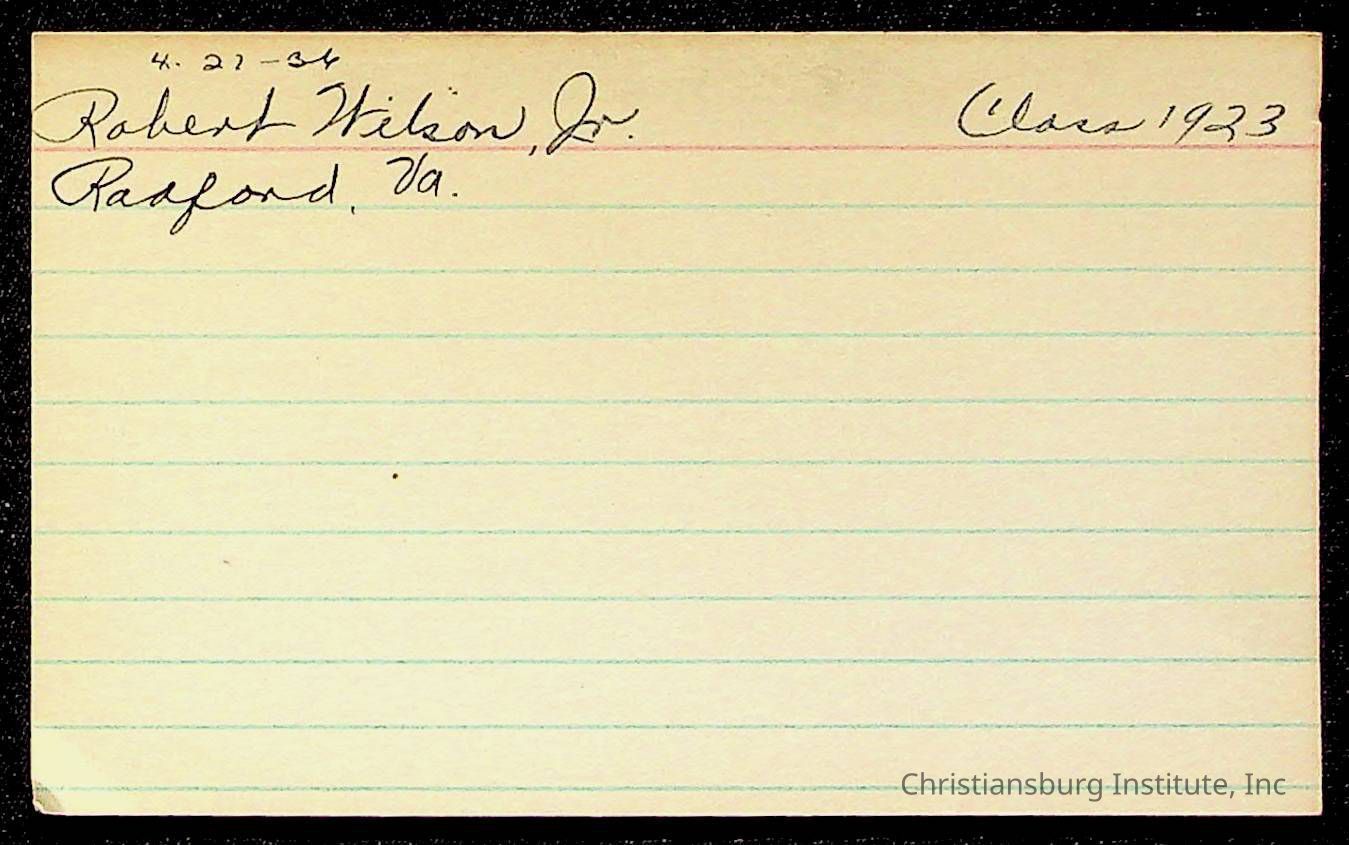 4. 27-36
Robert Wilson, Jr. Class 1923
Radford, Va.
Christiansburg Institute, Inc